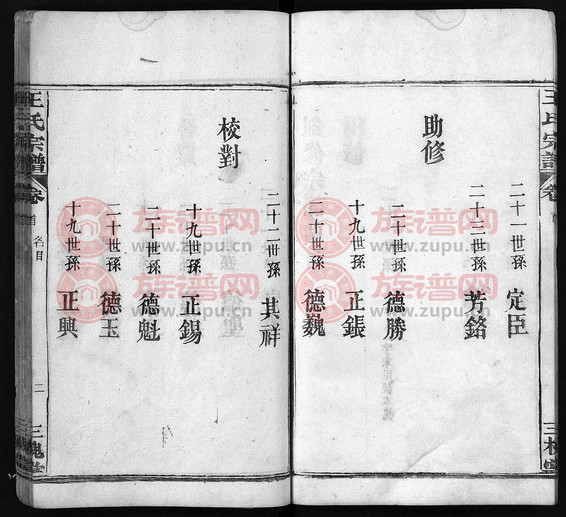 王氏宗譜
卷首
三槐堂
二十一世孫 定臣
二十三世孫 芳銘
助修
二十世孫 德勝
十九世孫 正鋹
二十世孫 德巍
二十二世孫 其祥
校對
十九世孫 正錫
二十世孫 德魁
二十世孫 德玉
十九世孫 正興
王氏宗譜
卷首
名目
二
三槐堂
族谱网
www.zupu.cn
族谱网
www.zupu.cn